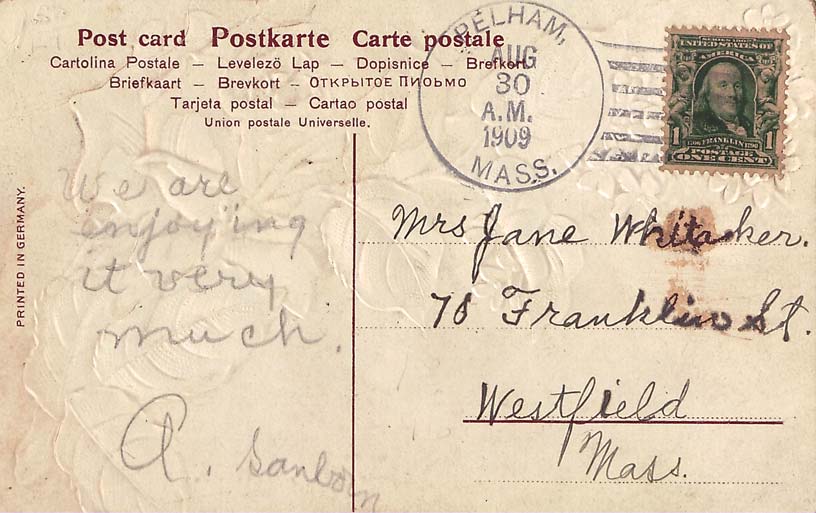 Post card Postkarte Carte postale
Cartolina Postale — Levelező Lap — Dopisnice — Brefkort
Briefkaart — Brevkort — ОТКРЫТОЕ ПИСЬМО
Tarjeta postal — Cartao postal
Union postale Universelle.
PELHAM,
AUG
30
A.M.
1909
MASS.
UNITED STATES OF
AMERICA
1 FRANKLIN 1
POSTAGE
ONE CENT
PRINTED IN GERMANY.
We are
enjoying
it very
much.
A. Sanborn
Mrs Jane Whitaker.
78 Franklin St.
Westfield
Mass.